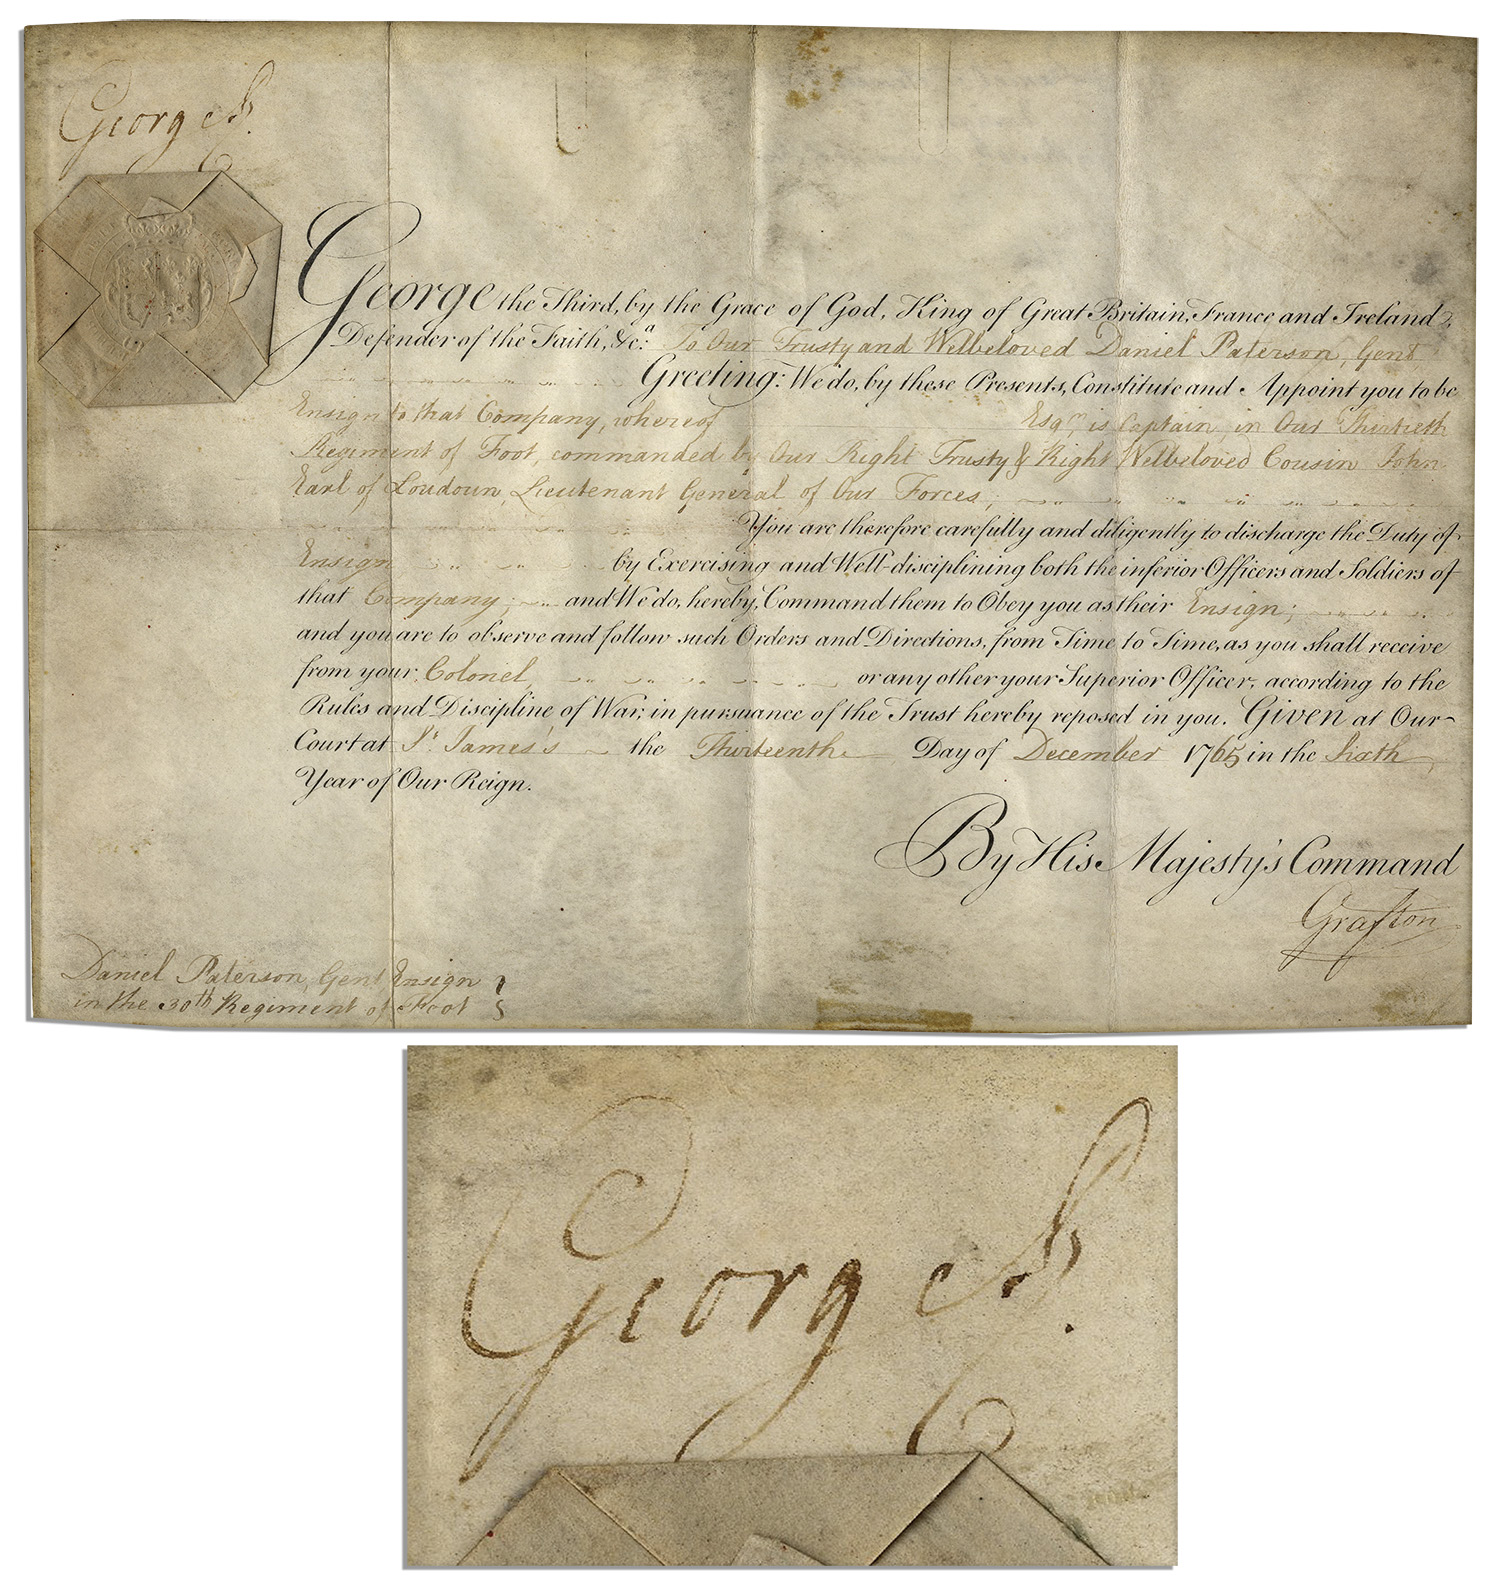 George R.
George the Third, by the Grace of God, King of Great Britain, France and Ireland,
Defender of the Faith, &c.ᵃ To Our Trusty and Welbeloved Daniel Paterson, Gent
Greeting: We do, by these Presents, Constitute and Appoint you to be
Ensign to that Company, whereof Esqʳ. is Captain, in Our Thirtieth
Regiment of Foot, commanded by Our Right Trusty & Right Welbeloved Cousin John
Earl of Loudoun, Lieutenant General of Our Forces;
You are therefore carefully and diligently to discharge the Duty of
Ensign by Exercising and Well-disciplining both the inferior Officers and Soldiers of
that Company; and We do, hereby, Command them to Obey you as their Ensign;
and you are to observe and follow such Orders and Directions, from Time to Time, as you shall receive
from your Colonel, or any other your Superior Officer, according to the
Rules and Discipline of War; in pursuance of the Trust hereby reposed in you. Given at Our
Court at Sᵗ. James's the Thirteenth Day of December 1765 in the Sixth
Year of Our Reign.
By His Majesty's Command
Grafton
Daniel Paterson, Gent Ensign
in the 30th Regiment of Foot
George R.